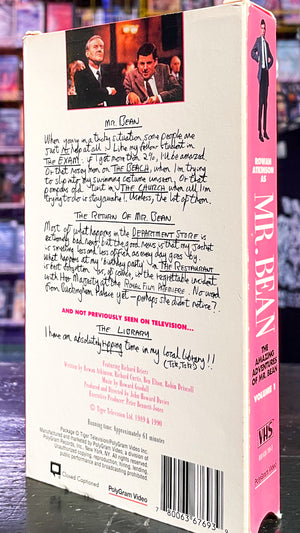 MR. BEAN
When you're in a tricky situation, some people are
just no help at all. Like my fellow student in
THE EXAM: if I get more than 2%, I'll be amazed.
Or that nosey man on THE BEACH, when I'm trying
to slip into my swimming costume unseen. Or that
pompous old in THE CHURCH when all I'm
trying to do is stay awake! Useless, the lot of them.
THE RETURN OF MR. BEAN
Most of what happens in the DEPARTMENT STORE is
extremely bad news, but the good news is that my jacket
is smelling less and less of fish as every day goes by.
What happens at my 'birthday party' in THE RESTAURANT
is best forgotten. Yes, of course, is the regrettable incident
with Her Majesty at the ROYAL FILM PREMIERE. No word
from Buckingham Palace yet — perhaps she didn't notice?
AND NOT PREVIOUSLY SEEN ON TELEVISION...
THE LIBRARY
I have an absolutely ripping time in my local library!!
(Tee, Tee!)
Featuring Richard Briers
Written by Rowan Atkinson, Richard Curtis, Ben Elton, Robin Driscoll
Music by Howard Goodall
Produced and Directed by John Howard Davies
Executive Producer Peter Bennett-Jones
© Tiger Television Ltd. 1989 & 1990
Running Time: Approximately 61 minutes
Package © Tiger Television/PolyGram Video Inc.
Manufactured and marketed by PolyGram Video, a division of
PolyGram Records, Inc., New York, NY. All rights reserved.
Unauthorized copying, reproduction, hiring, lending,
public performance and broadcasting prohibited.
Closed Captioned
PolyGram Video
7 80063 67693
ROWAN
ATKINSON
AS
MR. BEAN
THE AMAZING
ADVENTURES
OF MR. BEAN
VOLUME 1
VHS
PolyGram Video